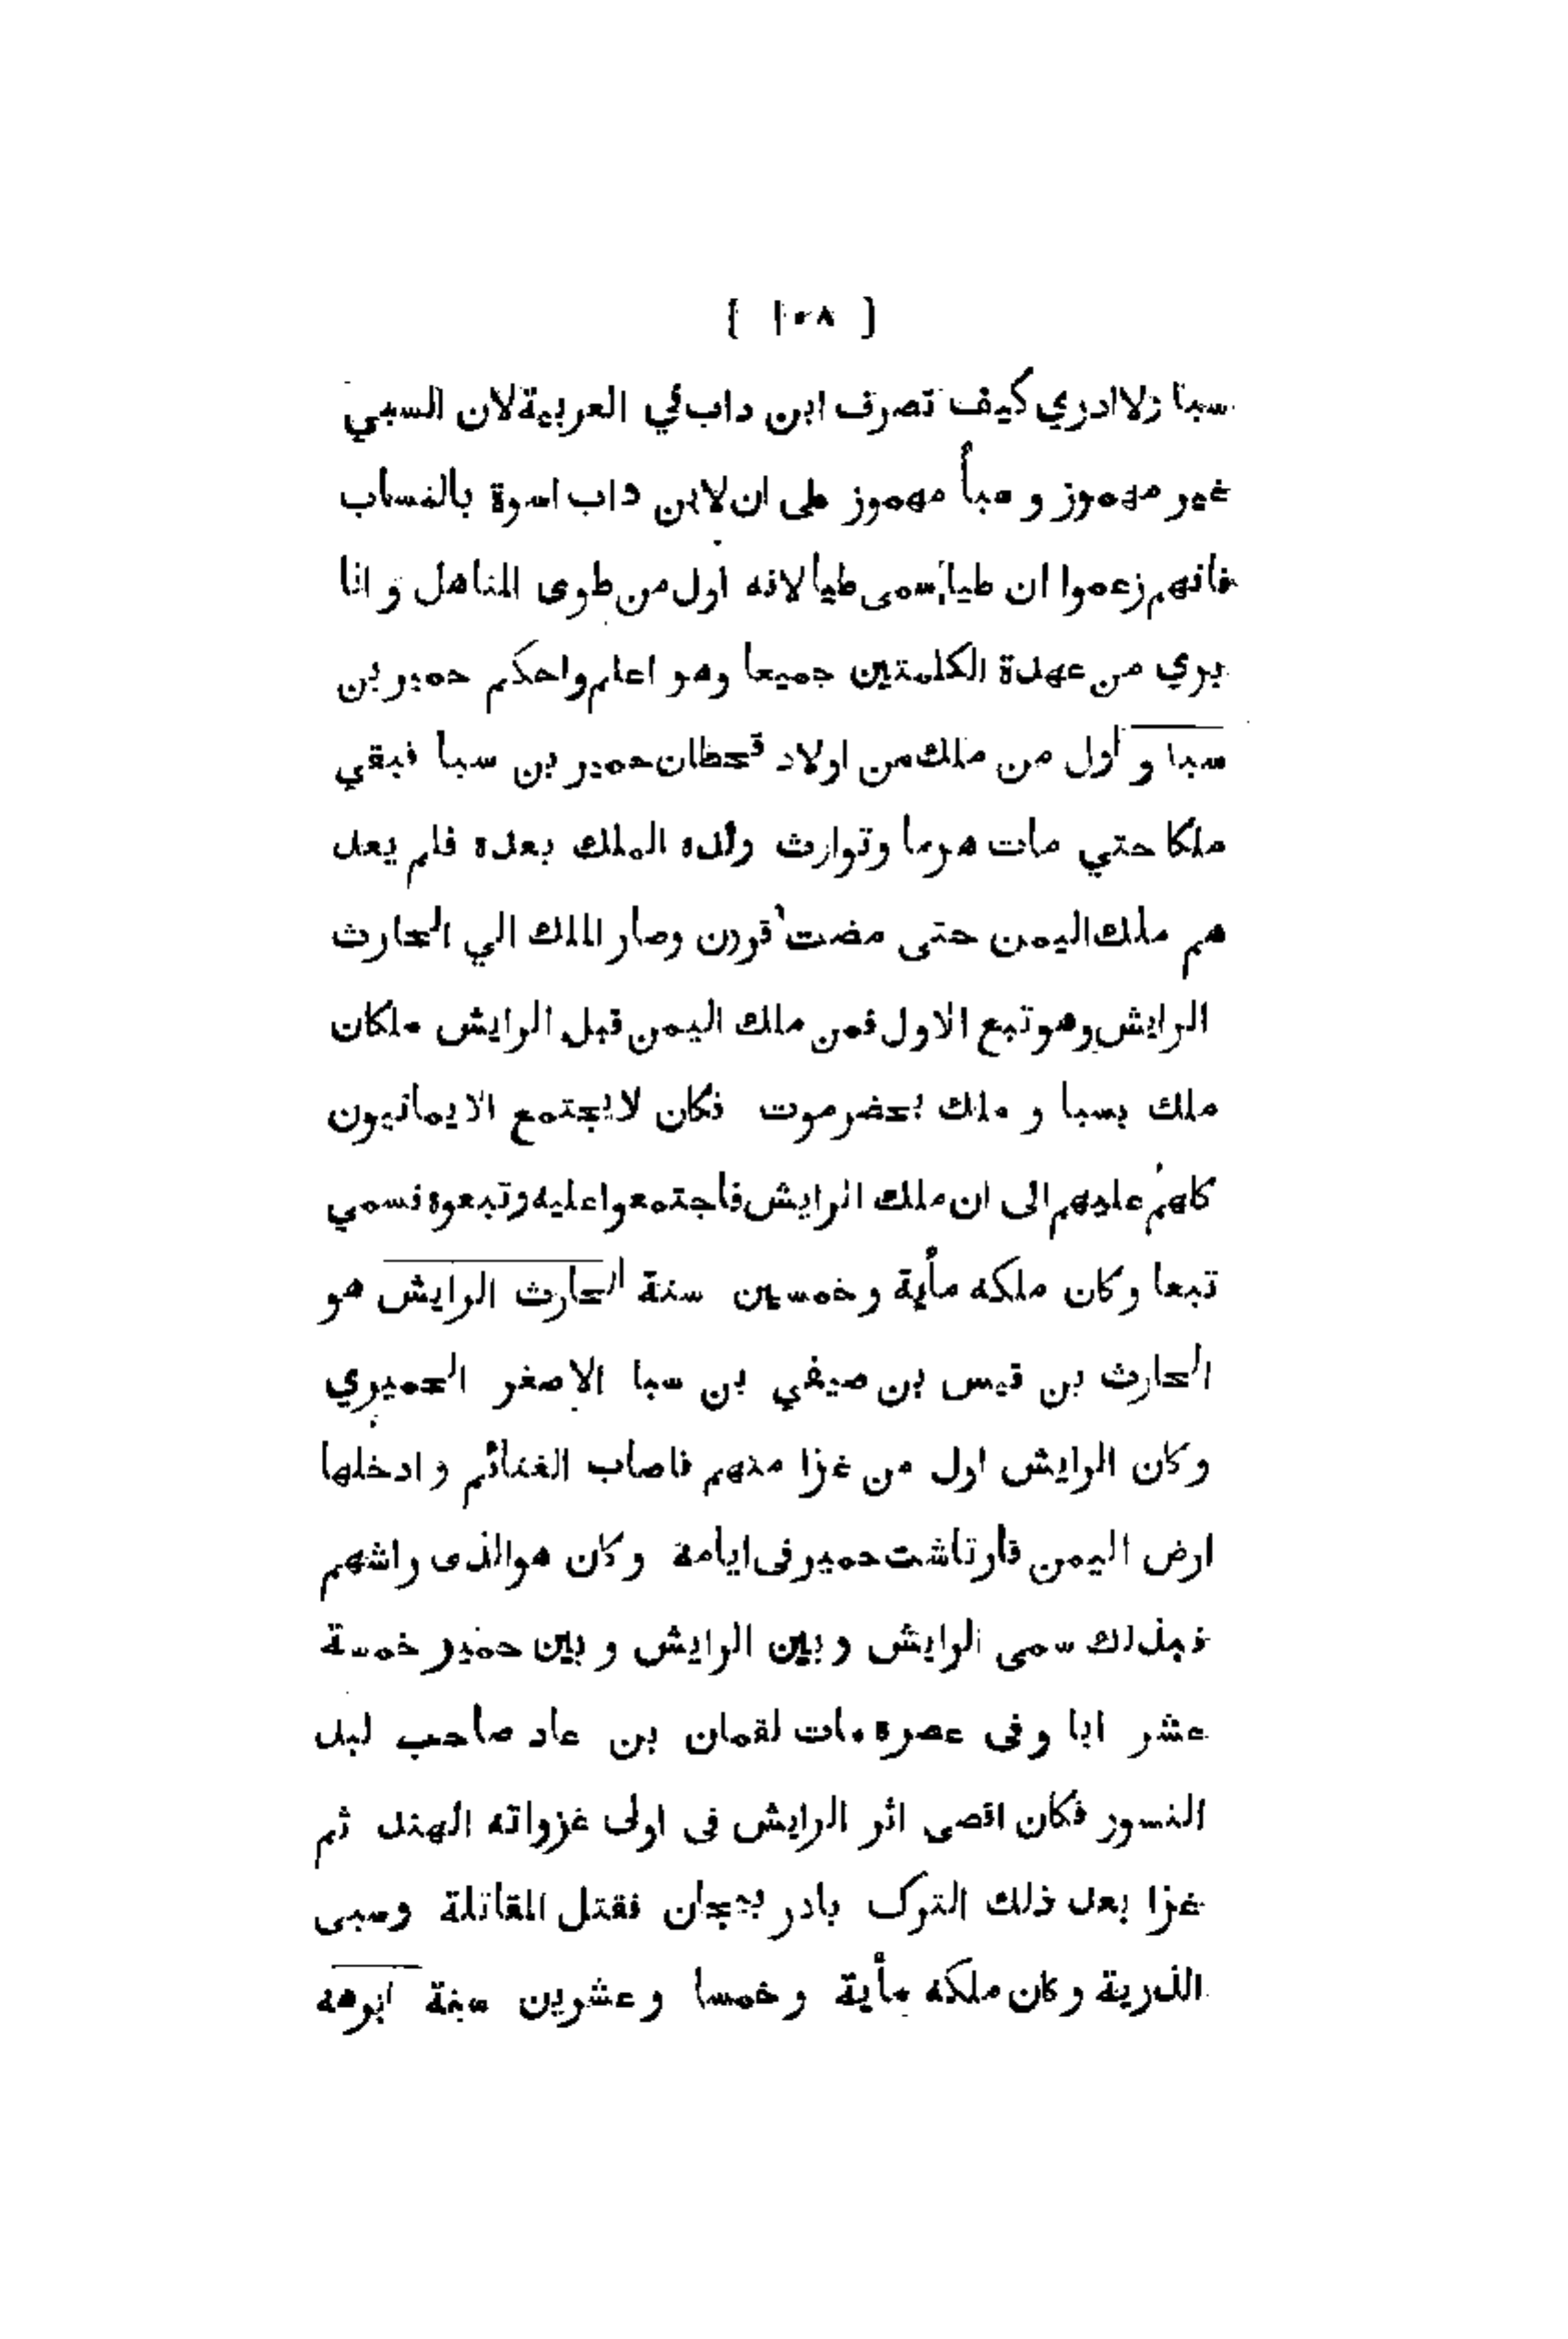 ( ١٠٨ )
سبا ولا ادري كيف تصرف ابن داب في العربية لان السبي
غير مهموز و سبأ مهموز على ان لابن داب اسوة بالنساب
فانهم زعموا ان طيا سمى طيا لانه اول من طوى المناهل و انا
بري من عهدة الكلمتين جميعا وهو اعلم واحكم حمير بن
سبا و اول من ملك من اولاد قحطان حمير بن سبا فبقي
ملكا حتي مات هرما وتوارث ولده الملك بعده فلم يعد
هم ملك اليمن حتى مضت قرون وصار الملك الي الحارث
الرايش وهو تبع الاول فمن ملك اليمن قبل الرايش ملكان
ملك بسبا و ملك بحضرموت فكان لا يجتمع الايمانيون
كلهم عليهم الى ان ملك الرايش فاجتمعوا عليه وتبعوه فسمي
تبعا وكان ملكه مأية وخمسين سنة الحارث الرايش هو
الحارث بن قيس بن صيفي بن سبا الاصغر الحميري
وكان الرايش اول من غزا منهم فاصاب الغنائم و ادخلها
ارض اليمن فارتاشت حمير فى ايامه وكان هو الذى راشهم
فبذلك سمى الرايش و بين الرايش و بين حمير خمسة
عشر ابا وفى عصره مات لقمان بن عاد صاحب لبد
النسور فكان اقصى اثر الرايش فى اولى غزواته الهند ثم
غزا بعد ذلك الترك بادربيجان فقتل المقاتلة وسبى
الذرية وكان ملكه مأية وخمسا وعشرين سنة ابرهه